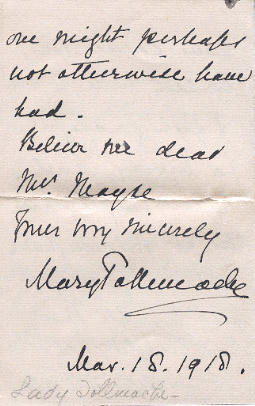 one might perhaps
not otherwise have
had.
Believe me dear
Mrs Mayse
Yours very sincerely
Mary Tollemache
Mar. 18. 1918.
Lady Tollmache